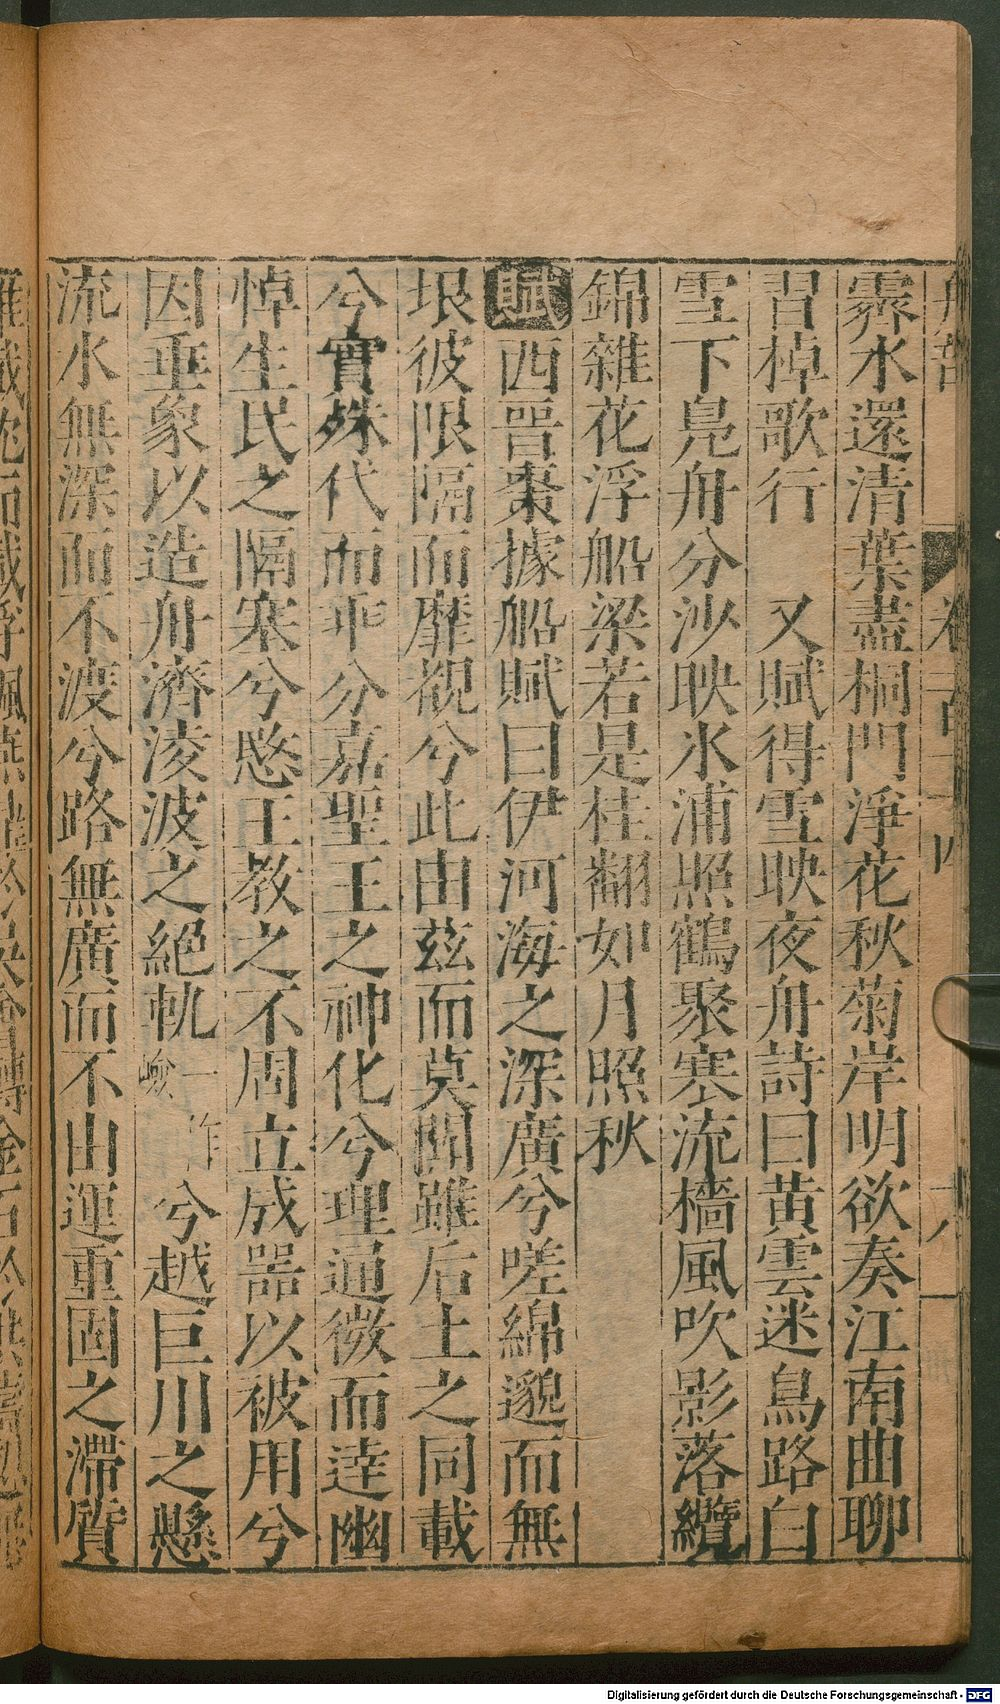 霽水還清葉盡桐門淨花秋菊岸明欲奏江南曲聊
習棹歌行　又賦得雪映夜舟詩曰黃雲迷鳥路白
雪下鳧舟分沙映氷浦照鶴聚寒流檣風吹影落纜
錦雜花浮船梁若是桂翻如月照秋
賦西晉棗據船賦曰伊河海之深廣兮嗟綿邈而無
垠彼限隔而靡覩兮此由茲而莫聞雖后土之同載
兮實殊代而乖分嘉聖王之神化兮理通微而達幽
悼生民之隔塞兮愍王教之不周立成噐以被用兮
因垂象以造舟濟淩波之絕軌一作兮越巨川之懸
流水無深而不渡兮路無廣而不由運重固之滯質
舟部
Digitalisierung gefördert durch die Deutsche Forschungsgemeinschaft - DFG